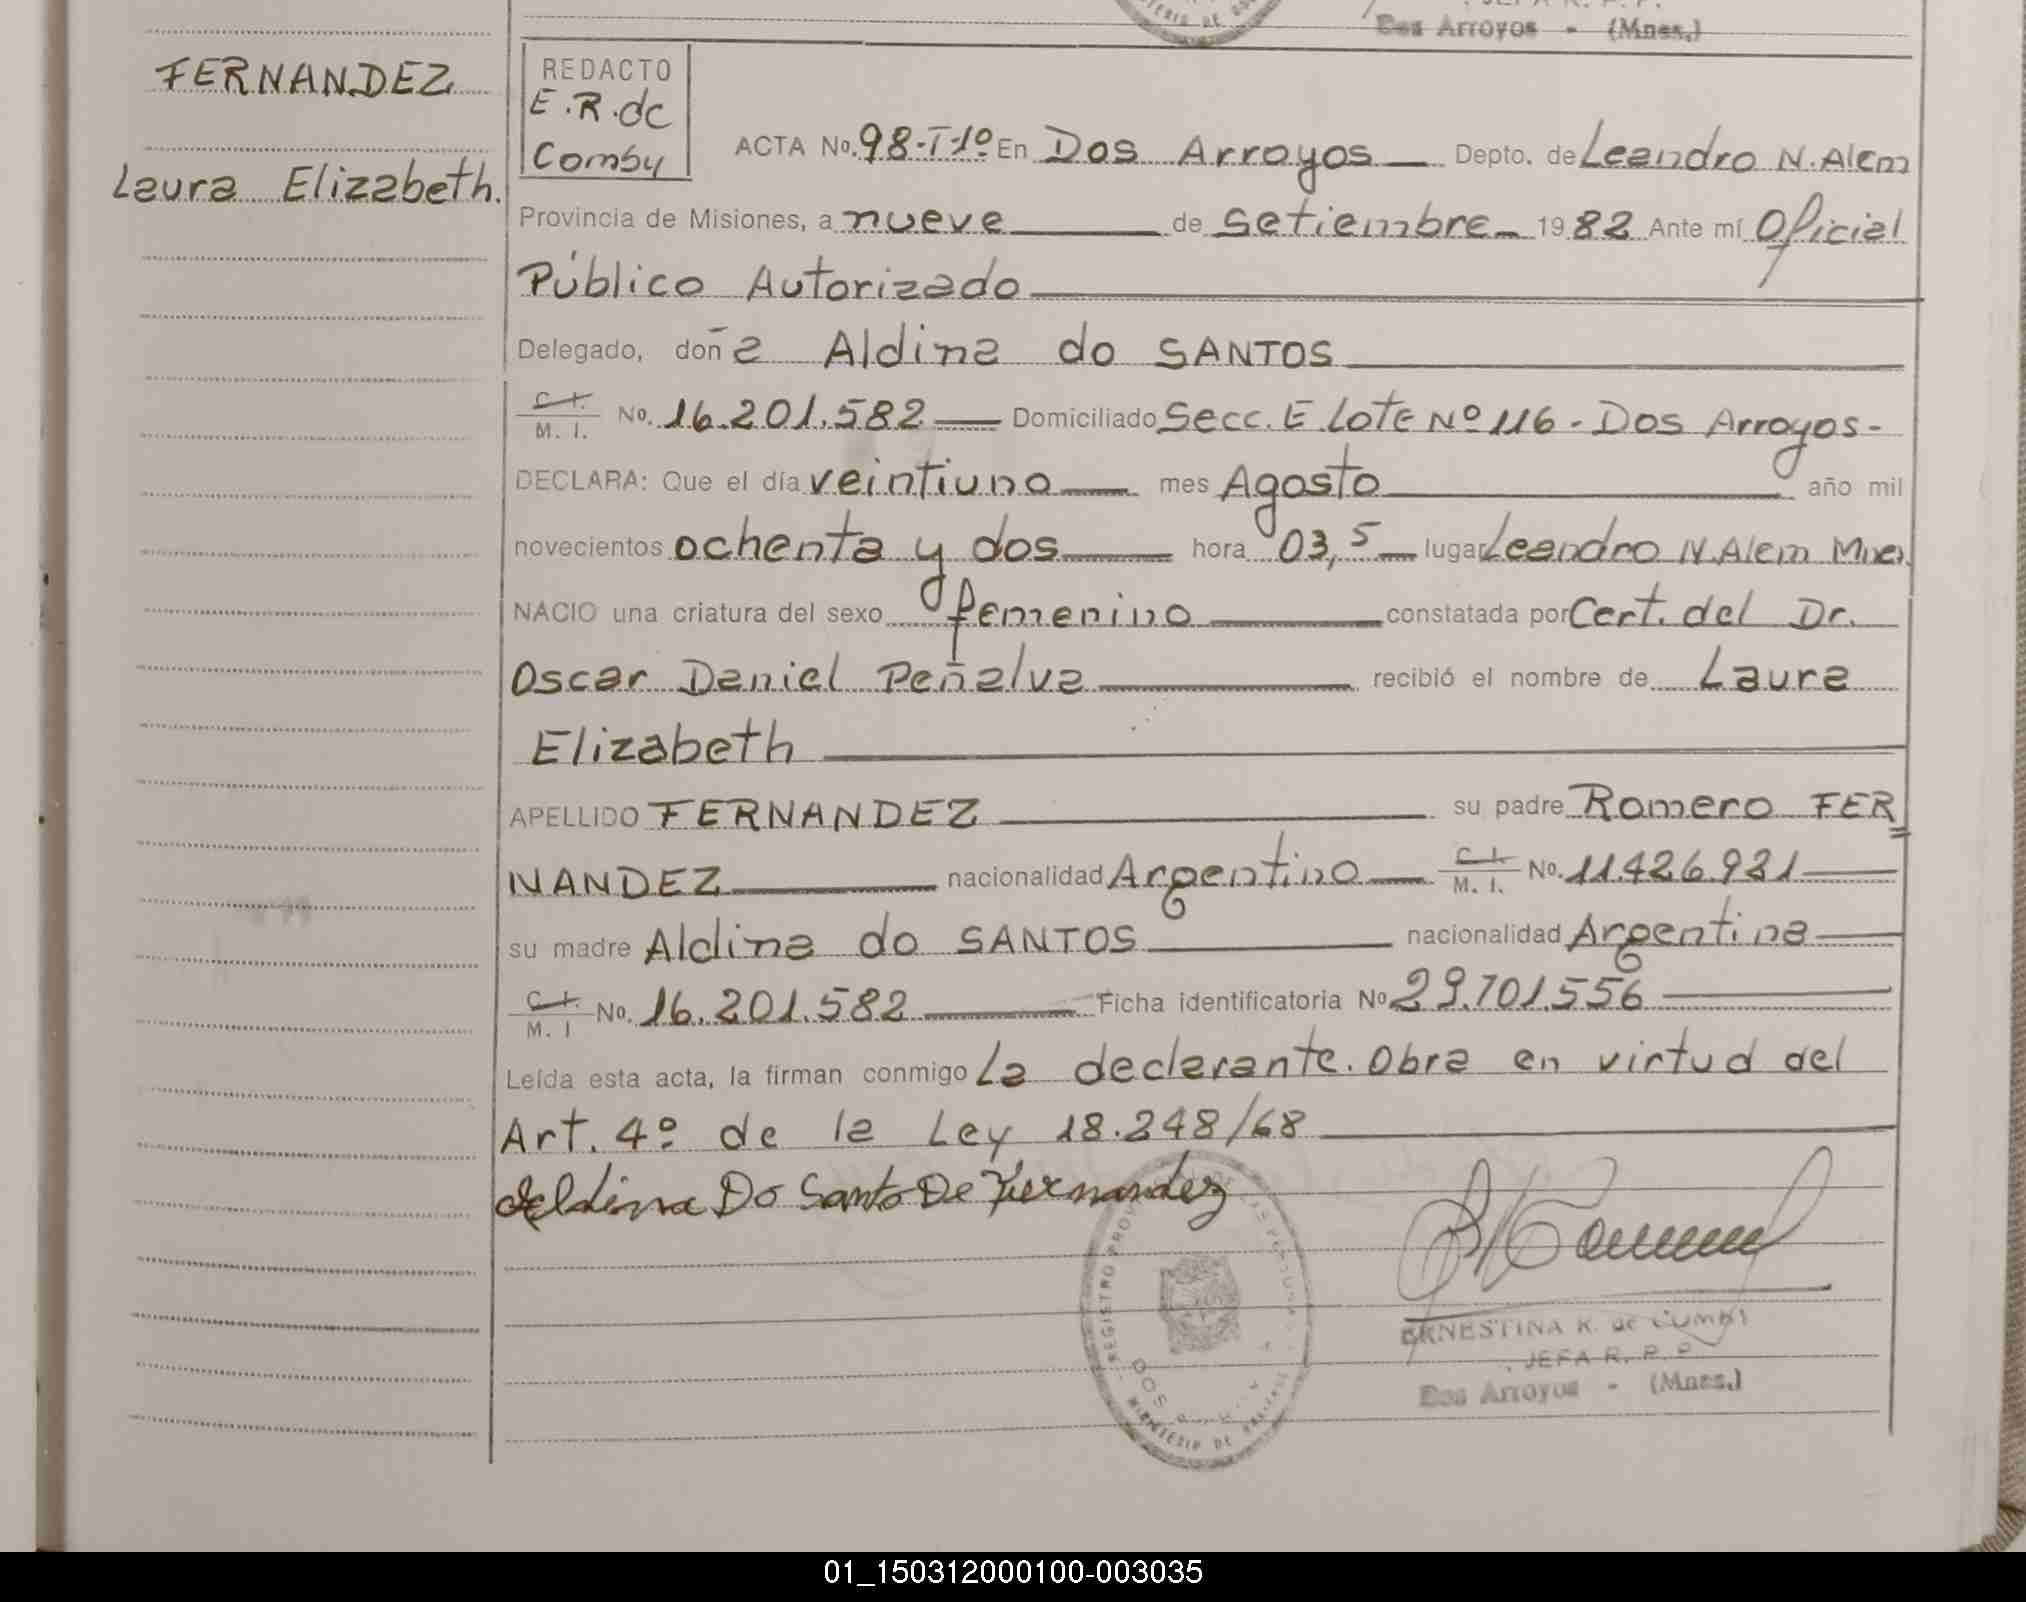 Dos Arroyos - (Mnes.)
FERNANDEZ
Laura Elizabeth.
REDACTO
E.R.de
Comby
ACTA No. 98-T-1º En Dos Arroyos Depto. de Leandro N. Alem
Provincia de Misiones, a nueve de setiembre 1982 Ante mí Oficial
Público Autorizado
Delegado, doña Aldina do SANTOS
C.I. M. I. No. 16.201.582 Domiciliado Secc. E Lote Nº 116 - Dos Arroyos-
DECLARA: Que el día veintiuno mes Agosto año mil
novecientos ochenta y dos hora 03,5 lugar Leandro N. Alem Mnes.
NACIO una criatura del sexo femenino constatada por Cert. del Dr.
Oscar Daniel Peñalva recibió el nombre de Laura
Elizabeth
APELLIDO FERNANDEZ su padre Romero FER
NANDEZ nacionalidad Argentino C.I. M. I. No. 11.426.931
su madre Aldina do SANTOS nacionalidad Argentina
C.I. M. I No. 16.201.582 Ficha identificatoria No 29.701.556
Leída esta acta, la firman conmigo La declarante. Obra en virtud del
Art. 4º de la Ley 18.248/68
Aldina Do Santo De Fernandez
REGISTRO PROV
DOS
MINISTERIO DE
ERNESTINA R. de COMBY
JEFA R. P. P.
Dos Arroyos - (Mnes.)
01_150312000100-003035